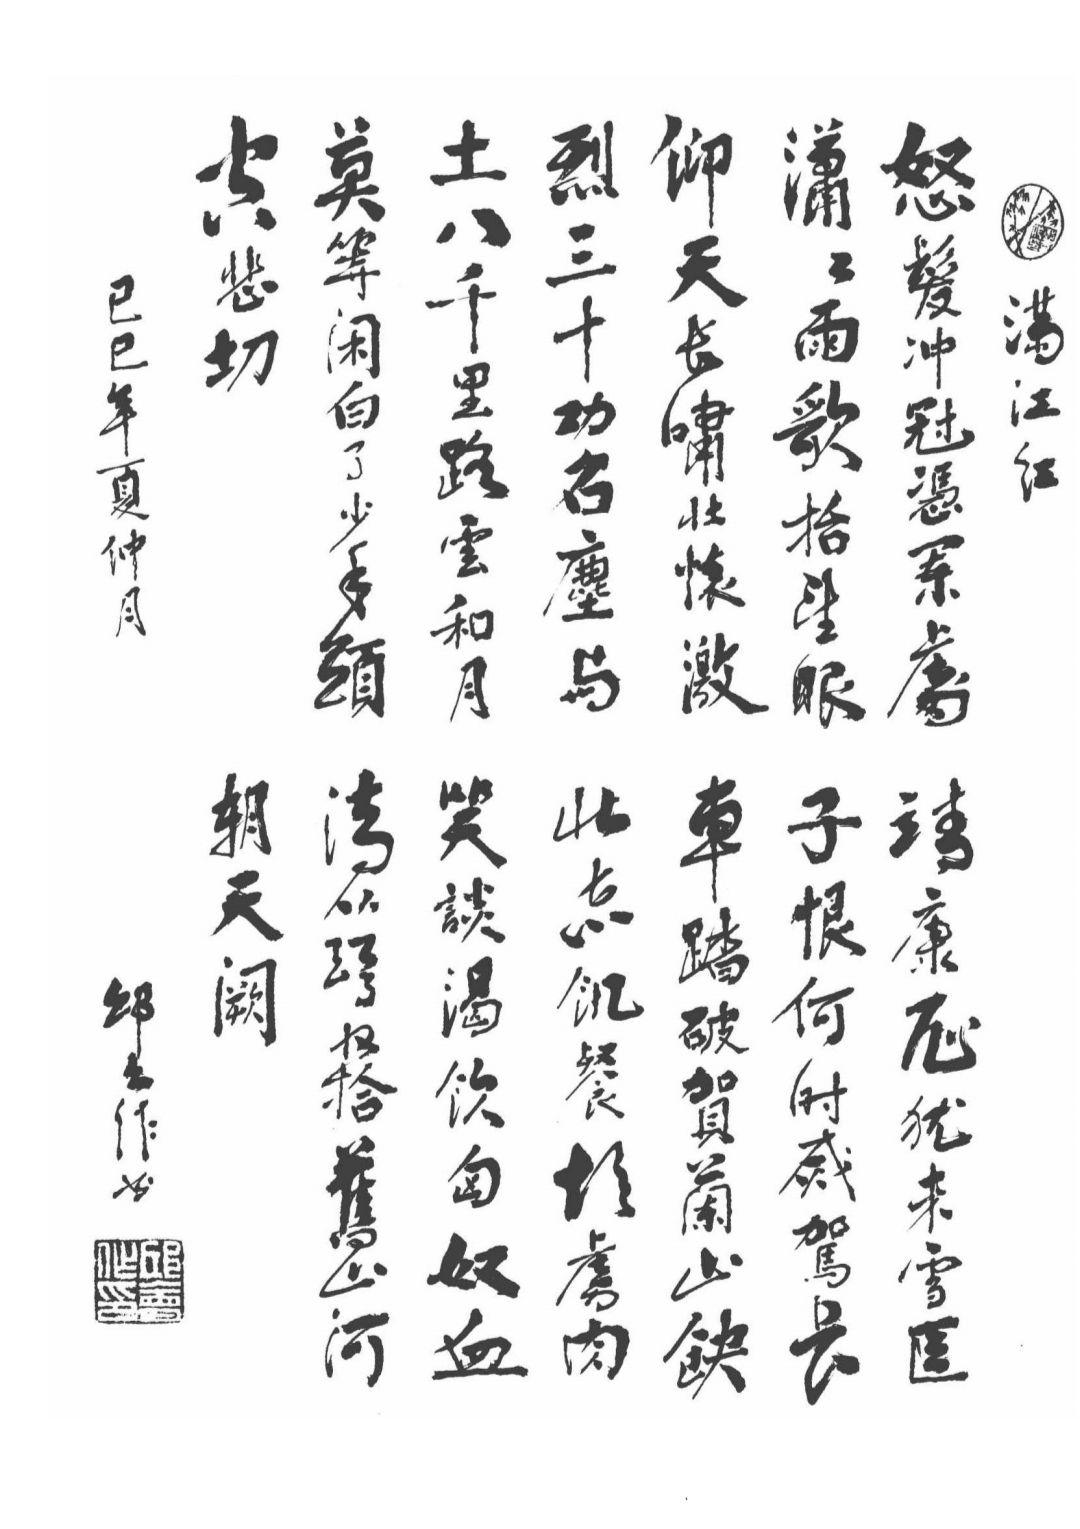 满江红
怒髮冲冠憑阑處
瀟〻雨歇抬望眼
仰天长嘯壮懷激
烈三十功名塵与
土八千里路雲和月
莫等闲白了少年頭
空悲切
靖康耻犹未雪臣
子恨何时滅駕长
車踏破賀蘭山缺
壮志飢餐胡虜肉
笑談渴饮匈奴血
待从頭收拾舊山河
朝天阙
己巳年夏仲月
邱作书